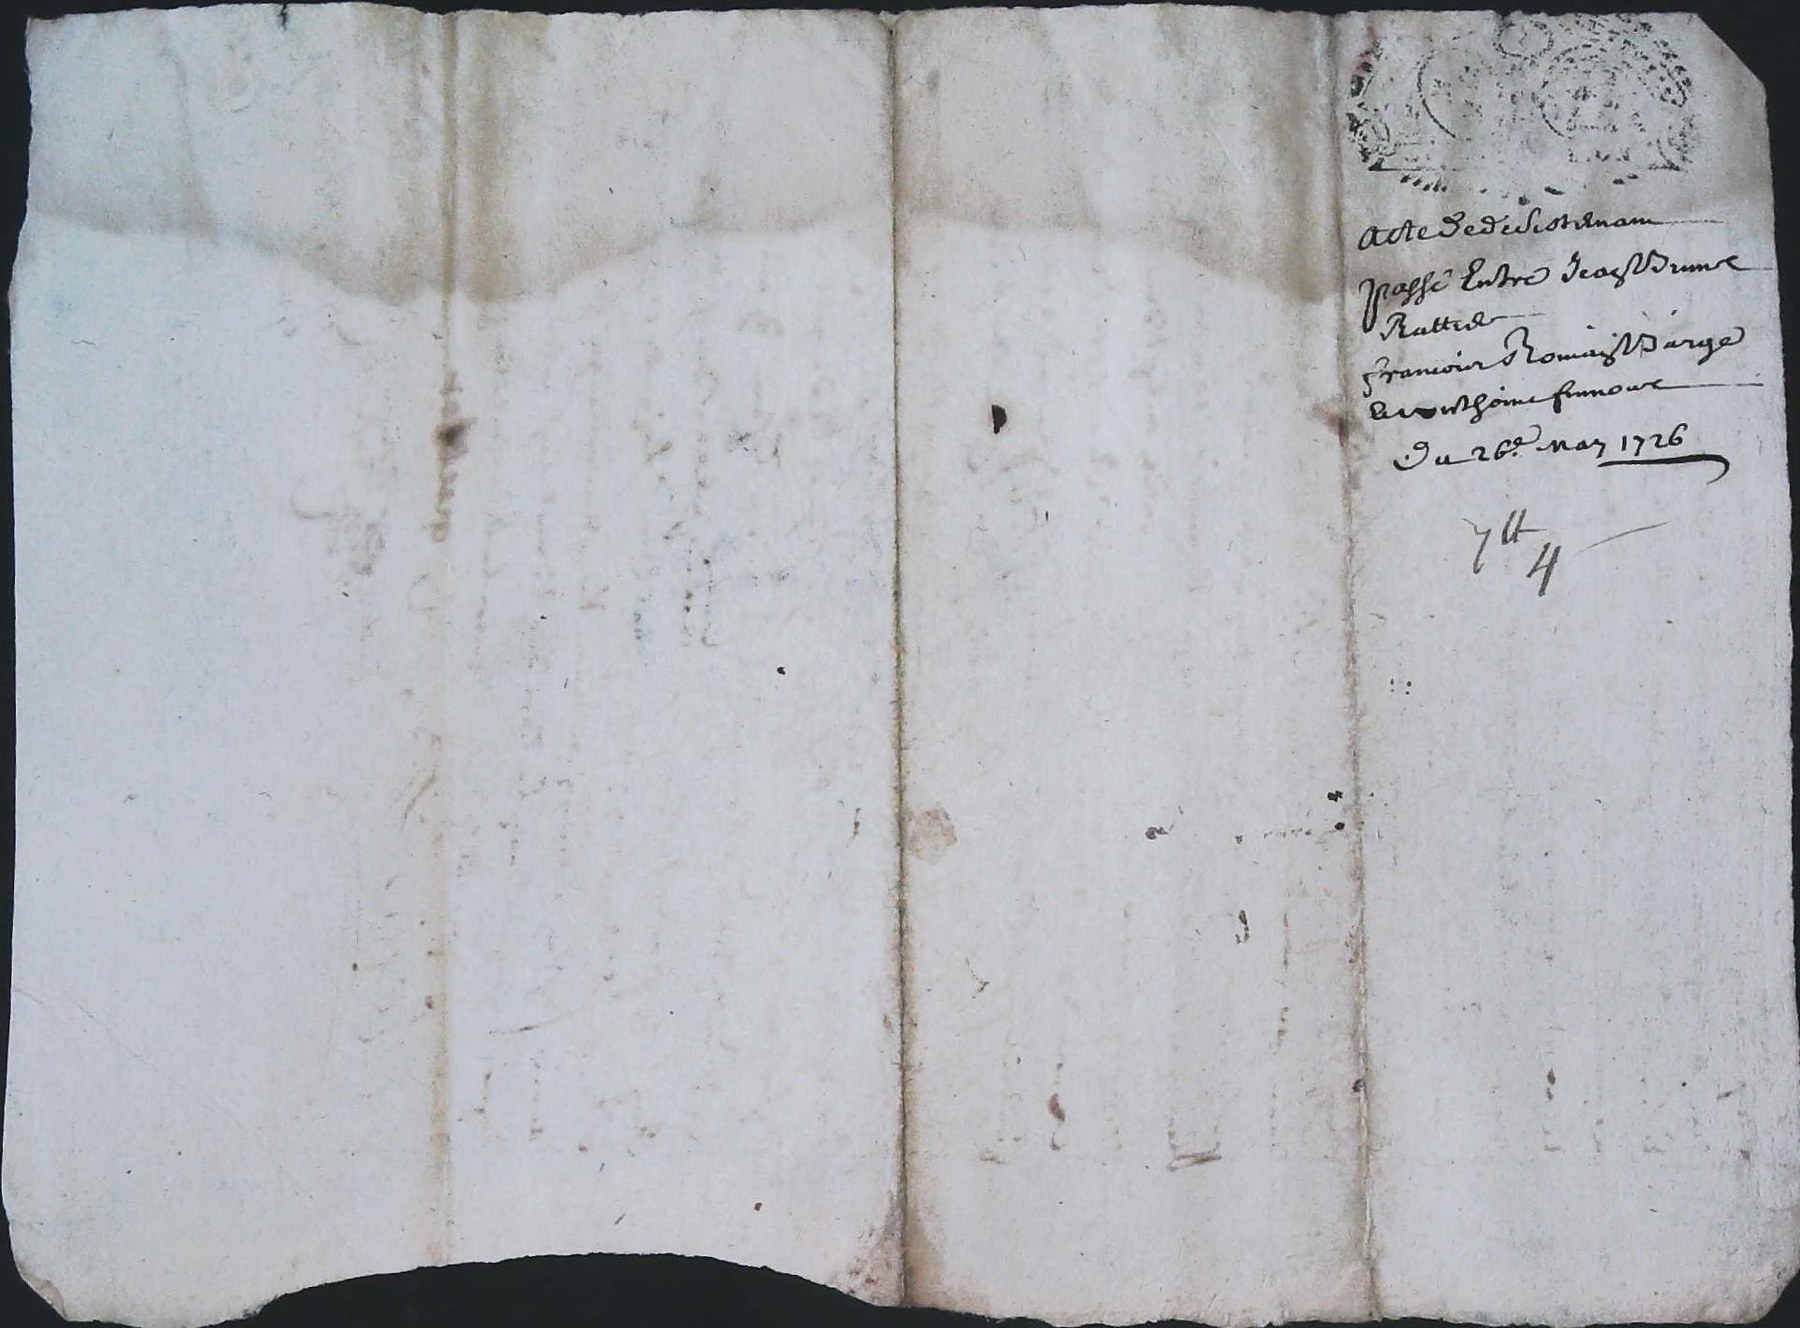 acte de desistemam
passé Entre Jean Brune
Rattier
francoix Romain Barge
et anthoine
Du 26e May 1726
7tt
4